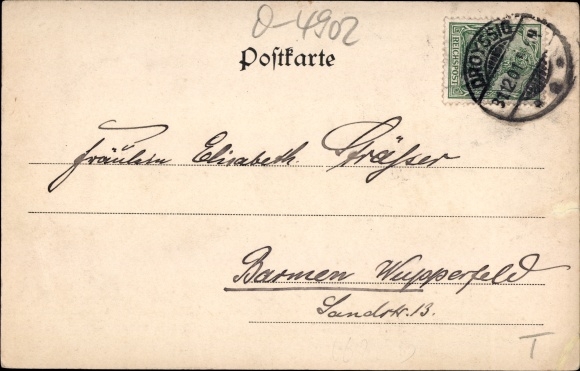 O-4902
Postkarte
REICHSPOST
DROYSSIG
31.12.01
Fräulein Elisabeth. Sträßer
Barmen Wupperfeld
Sandstr. 13.
T